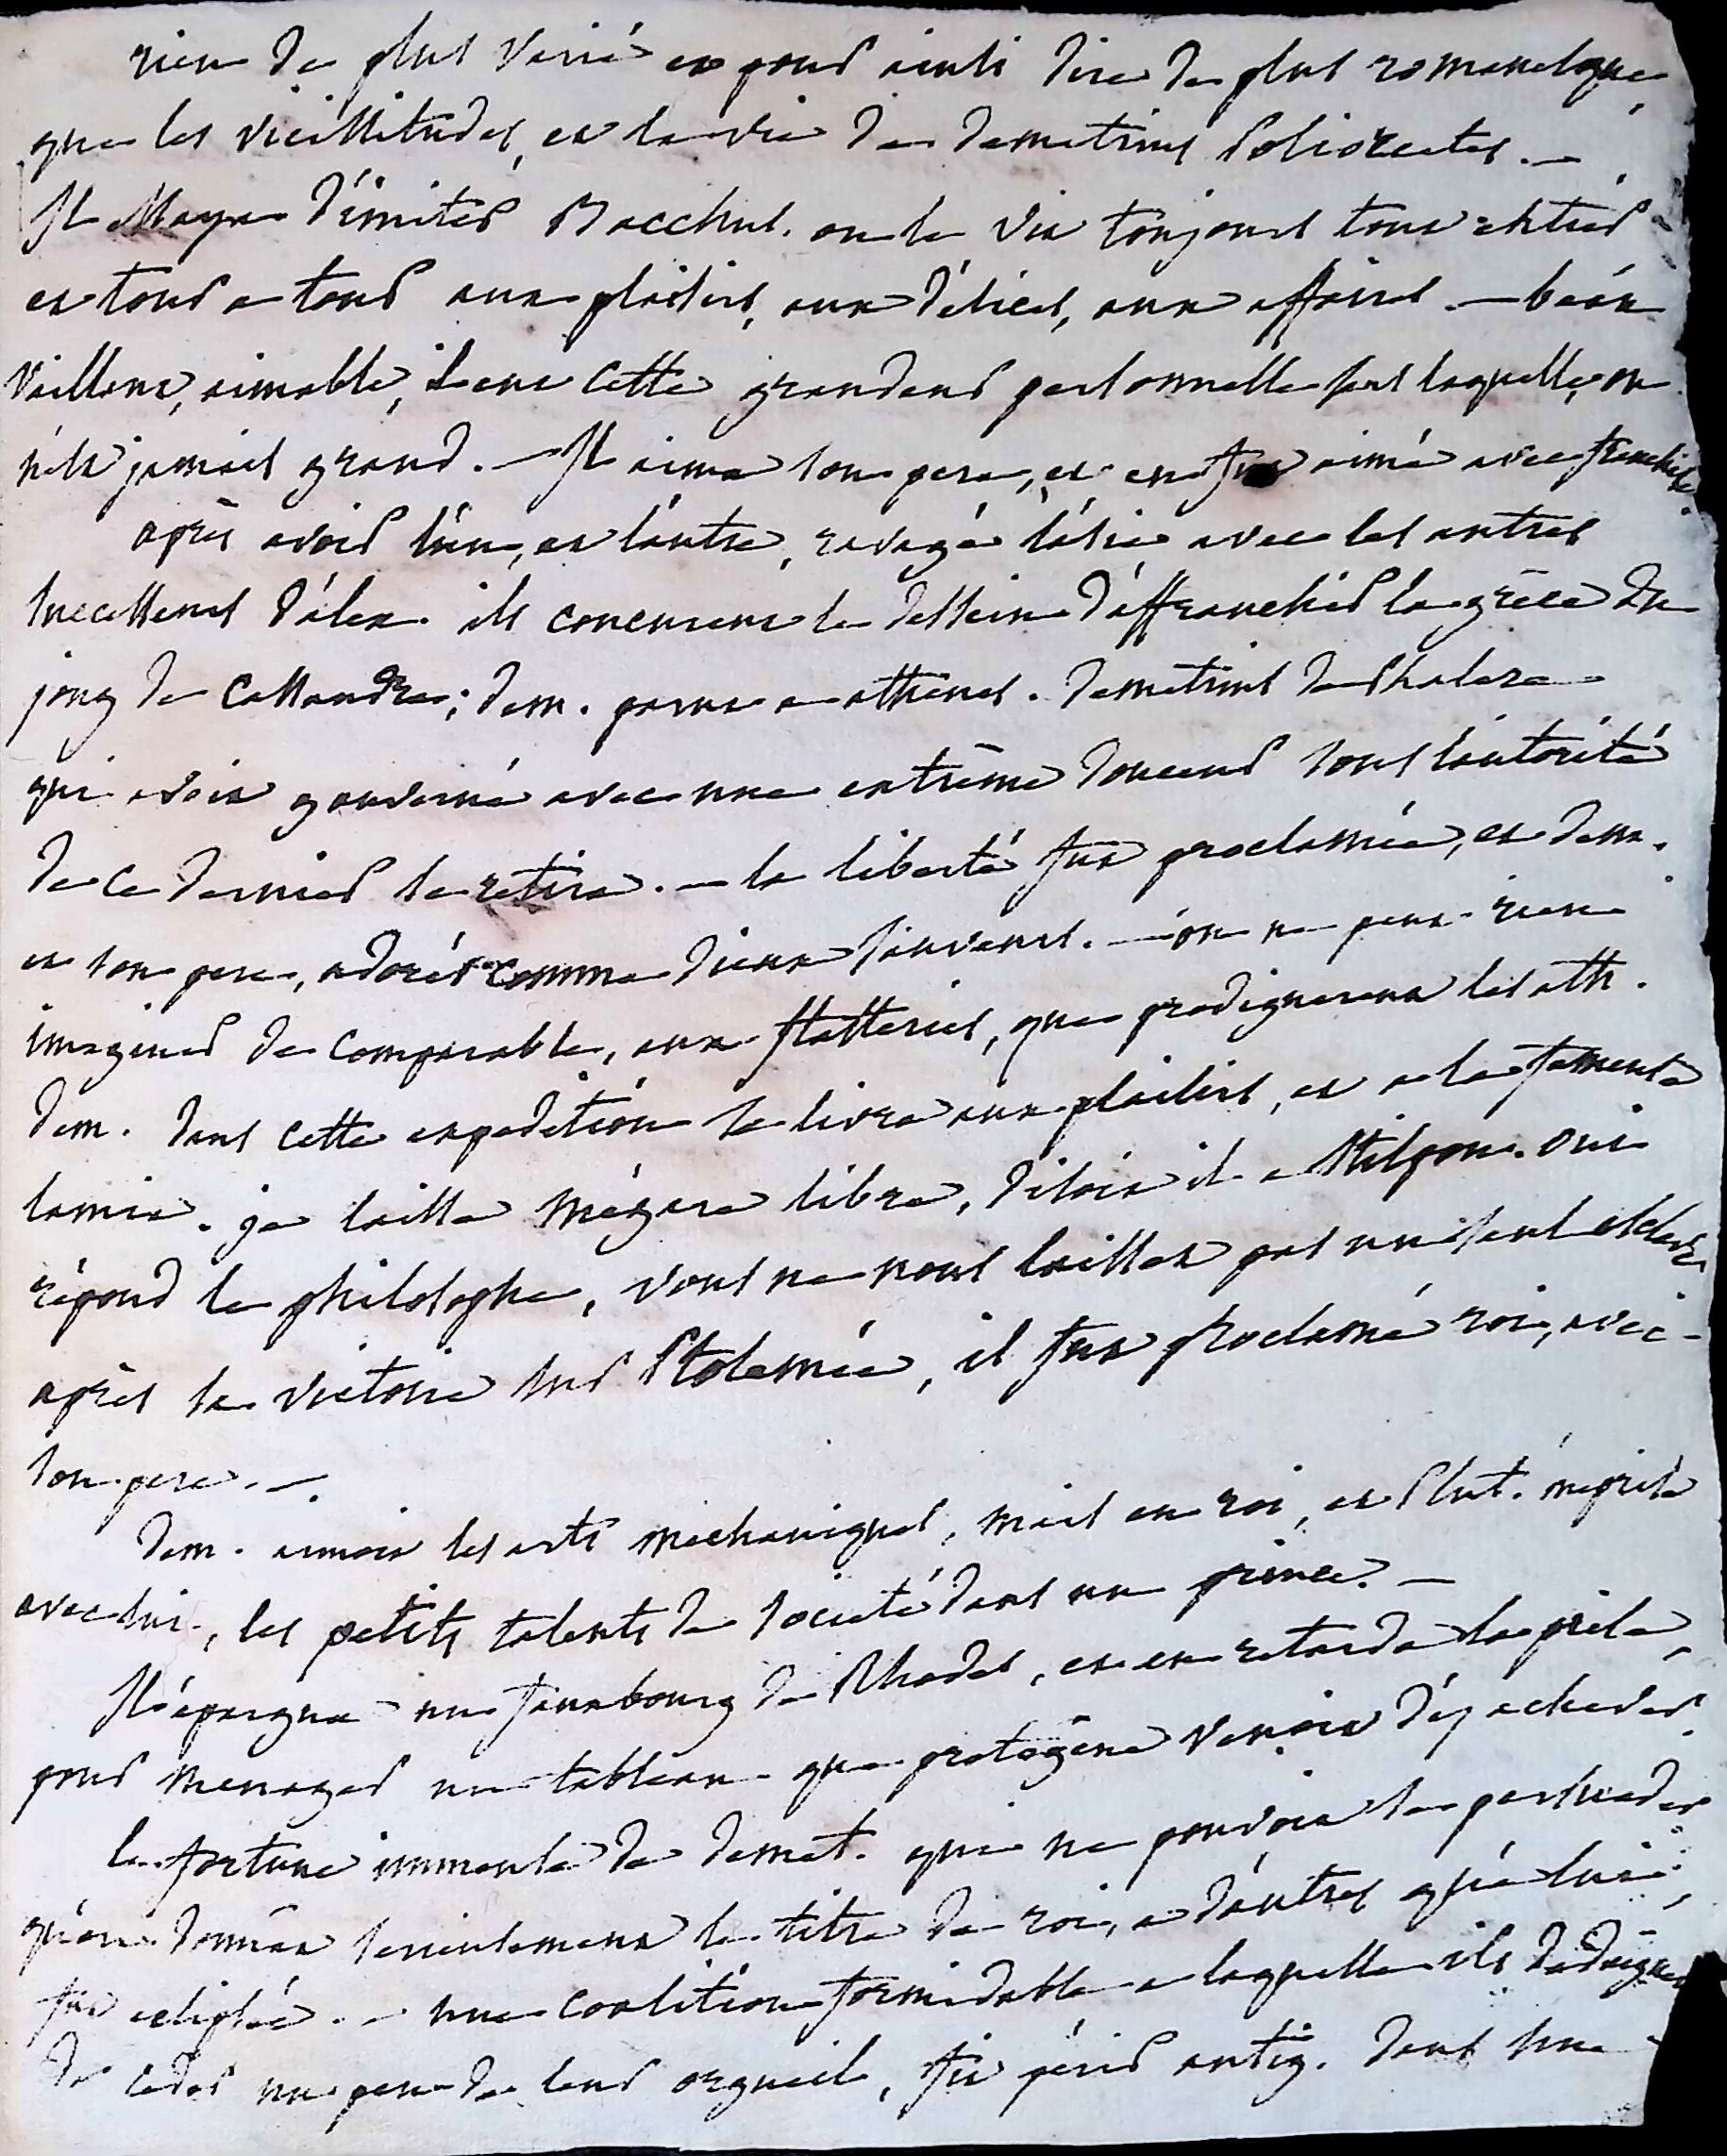 rien de plus varié et pour ainsi dire de plus romanesque
que les vicissitudes, et la vie de demetrius Poliorcetes. —
Il essaya d'imiter Bacchus. on le vit toujours tout entier
et tour a tour aux plaisirs, aux délices, aux affaires. — beau
vaillant, aimable, il eut cette grandeur personnelle sans laquelle, on
n'est jamais grand. — Il aima son pere, et en fut aimé avec franchise
après avoir l'un, et l'autre, ravagé l'asie avec les autres
successeurs d'alex. ils concurent le dessein d'affranchir la grèce du
joug de Cassandre; dem. parut a athenes. demetrius de Phalere
qui avoit gouverné avec une extrême douceur sous l'autorité
de ce dernier se retira. — la liberté fut proclamée, et dem.
et son pere, adorés comme dieux sauveurs. — on ne peut rien
imaginer de comparable, aux flatteries, que prodiguerent les ath.
dem. dans cette expedition se livra aux plaisirs, et a la fameuse
lamia. je laisse mégare libre, disoit il a Stilpon. oui
répond le philosophe, vous ne nous laissez pas un seul esclave
après sa victoire sur Ptolemée, il fut proclamé roi, avec
son pere. —
dem. aimoit les arts mechaniques, mais en roi, et Plut. méprise
avec lui, les petits talents de societé dans un prince. —
Il épargna un fauxbourg de Rhodes, et en retarda la prise,
pour menager un tableau que protogène venoit d'y achever.
la fortune immense de demet. qui ne pouvoit se persuader
qu'on donnât serieusement le titre de roi, a d'autres qu'a lui,
fut eclipsée. — une coalition formidable a laquelle ils dedaignerent
de ceder un peu de leur orgueil, fit périr antig. dans une